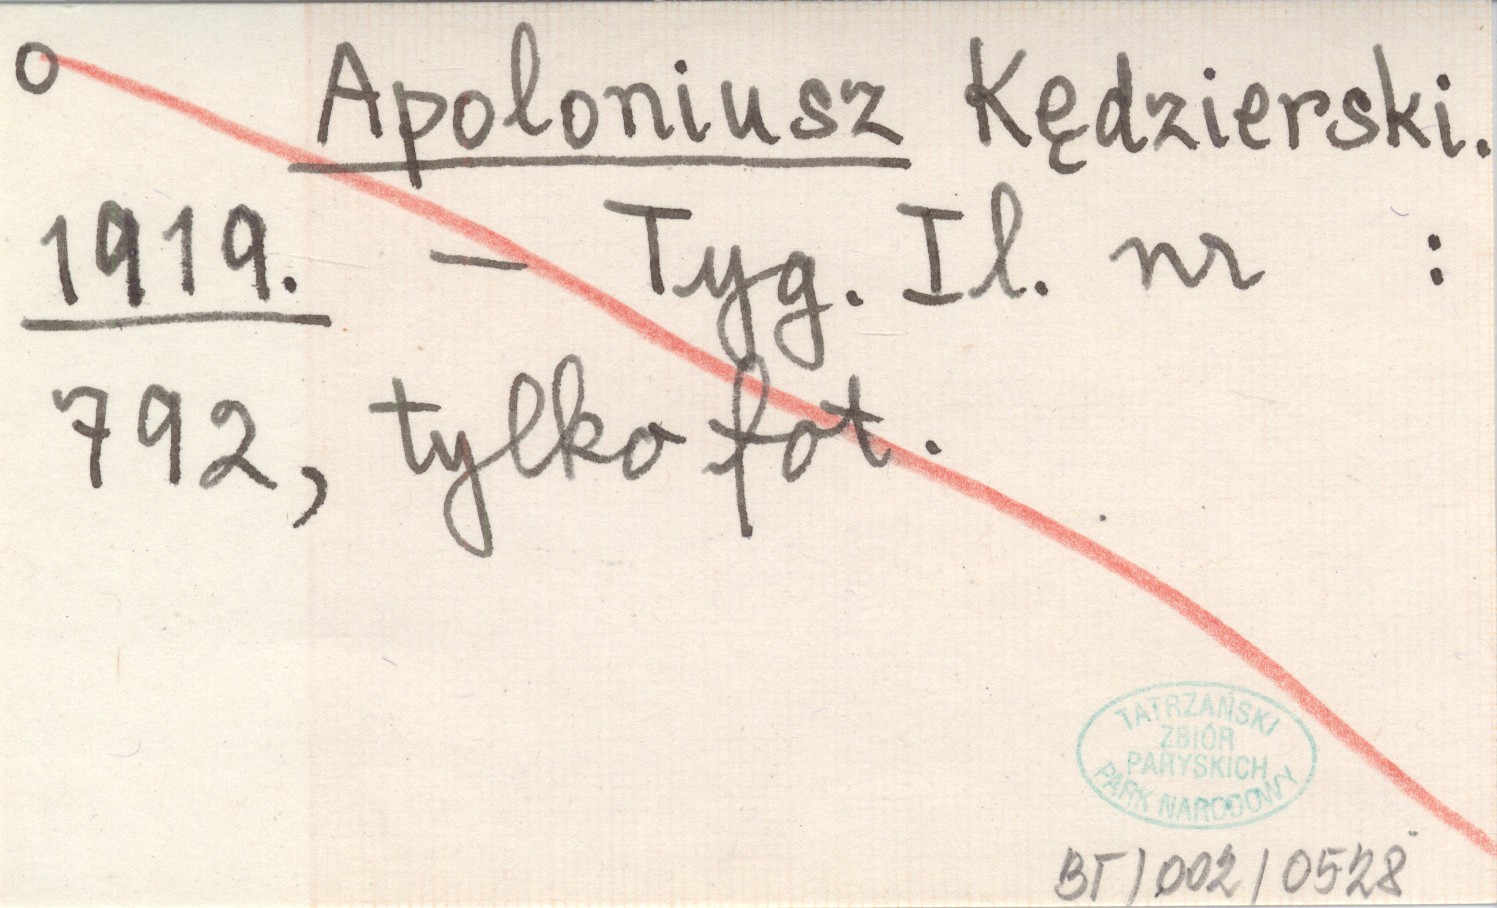 O Apoloniusz Kędzierski.
1919. – Tyg. Il. nr :
792, tylko fot.
TATRZAŃSKI
ZBIÓR
PARYSKICH
PARK NARODOWY
BT/002/0528